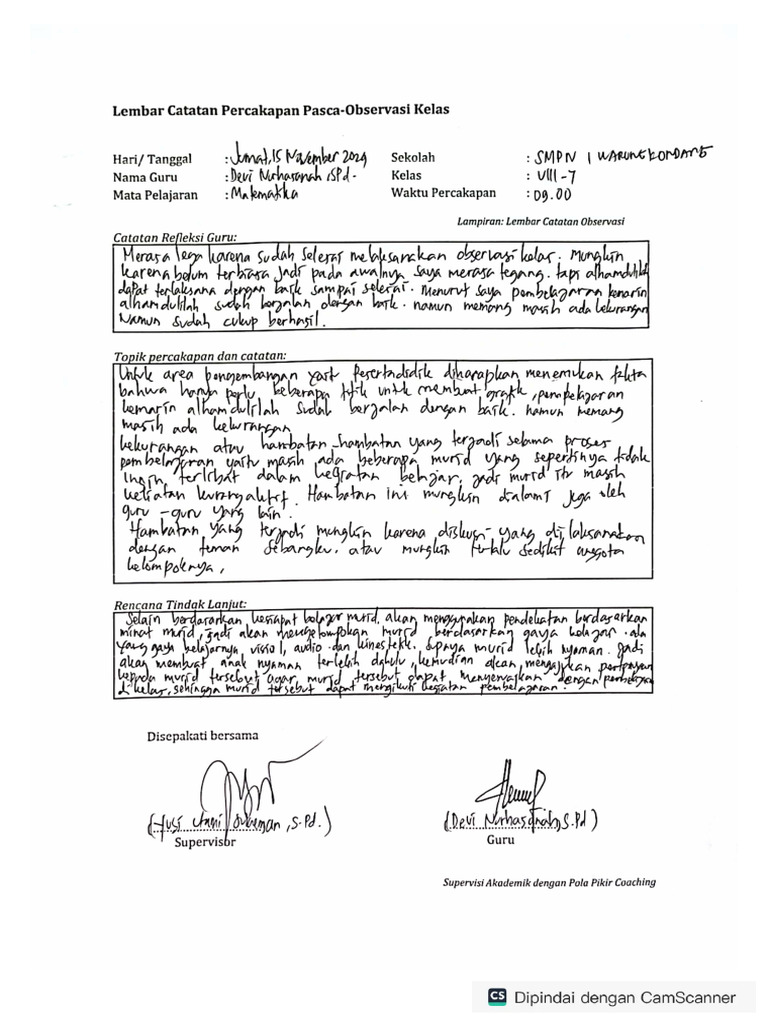 Lembar Catatan Percakapan Pasca-Observasi Kelas
Hari/ Tanggal : Jumat, 15 November 2024 Sekolah : SMPN 1 WARUNGKONDANG
Nama Guru : Devi Nurhasanah, S.Pd. Kelas : VIII - 7
Mata Pelajaran : Matematika Waktu Percakapan : 09.00
Lampiran: Lembar Catatan Observasi
Catatan Refleksi Guru:
Merasa lega karena sudah selesai melaksanakan observasi kelas. Mungkin
karena belum terbiasa jadi pada awalnya saya merasa tegang. tapi alhamdulilah
dapat terlaksana dengan baik sampai selesai. Menurut saya pembelajaran kemarin
alhamdulilah sudah berjalan dengan baik. namun memang masih ada kekurangan
Namun sudah cukup berhasil.
Topik percakapan dan catatan:
Untuk area pengembangan yaitu peserta didik diharapkan menemukan fakta
bahwa hanya perlu beberapa titik untuk membuat grafik, pembelajaran
kemarin alhamdulilah sudah berjalan dengan baik. namun memang
masih ada kekurangan
kekurangan atau hambatan-hambatan yang terjadi selama proses
pembelajaran yaitu masih ada beberapa murid yang sepertinya tidak
ingin terlibat dalam kegiatan belajar, jadi murid itu masih
kelihatan kurang aktif. Hambatan ini mungkin dialami juga oleh
guru-guru yang lain.
Hambatan yang terjadi mungkin karena diskusi yang dilaksanakan
dengan teman sebangku. atau mungkin terlalu sedikit anggota
kelompoknya,
Rencana Tindak Lanjut:
Selain berdasarkan kesiapan belajar murid, akan menggunakan pendekatan berdasarkan
minat murid, jadi akan mengelompokan murid berdasarkan gaya belajar. ada
yang gaya belajarnya, visial, audio dan kinestetik. supaya murid lebih nyaman. Jadi
akan membuat anak nyaman terlebih dahulu, kemudian akan mengajukan pertanyaan
kepada murid tersebut agar murid tersebut dapat menyesuaikan dengan pembelajaran
di kelas, sehingga murid tersebut dapat mengikuti kegiatan pembelajaran.
Disepakati bersama
(Devi Nurhasanah, S.Pd)
Supervisor Guru
Supervisi Akademik dengan Pola Pikir Coaching
CS Dipindai dengan CamScanner